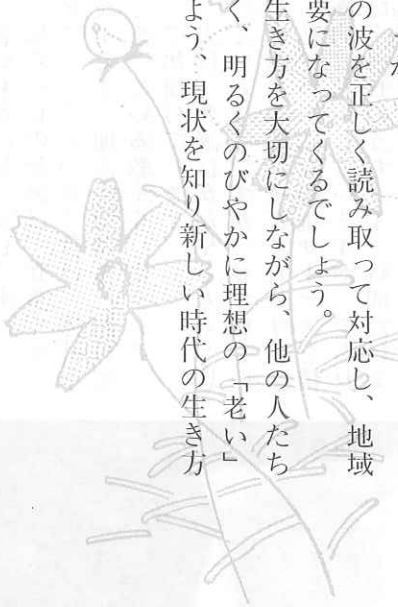 の波を正しく読み取って対応し、地域
要になってくるでしょう。
生き方を大切にしながら、他の人たち
く、明るくのびやかに理想の「老い」
よう、現状を知り新しい時代の生き方